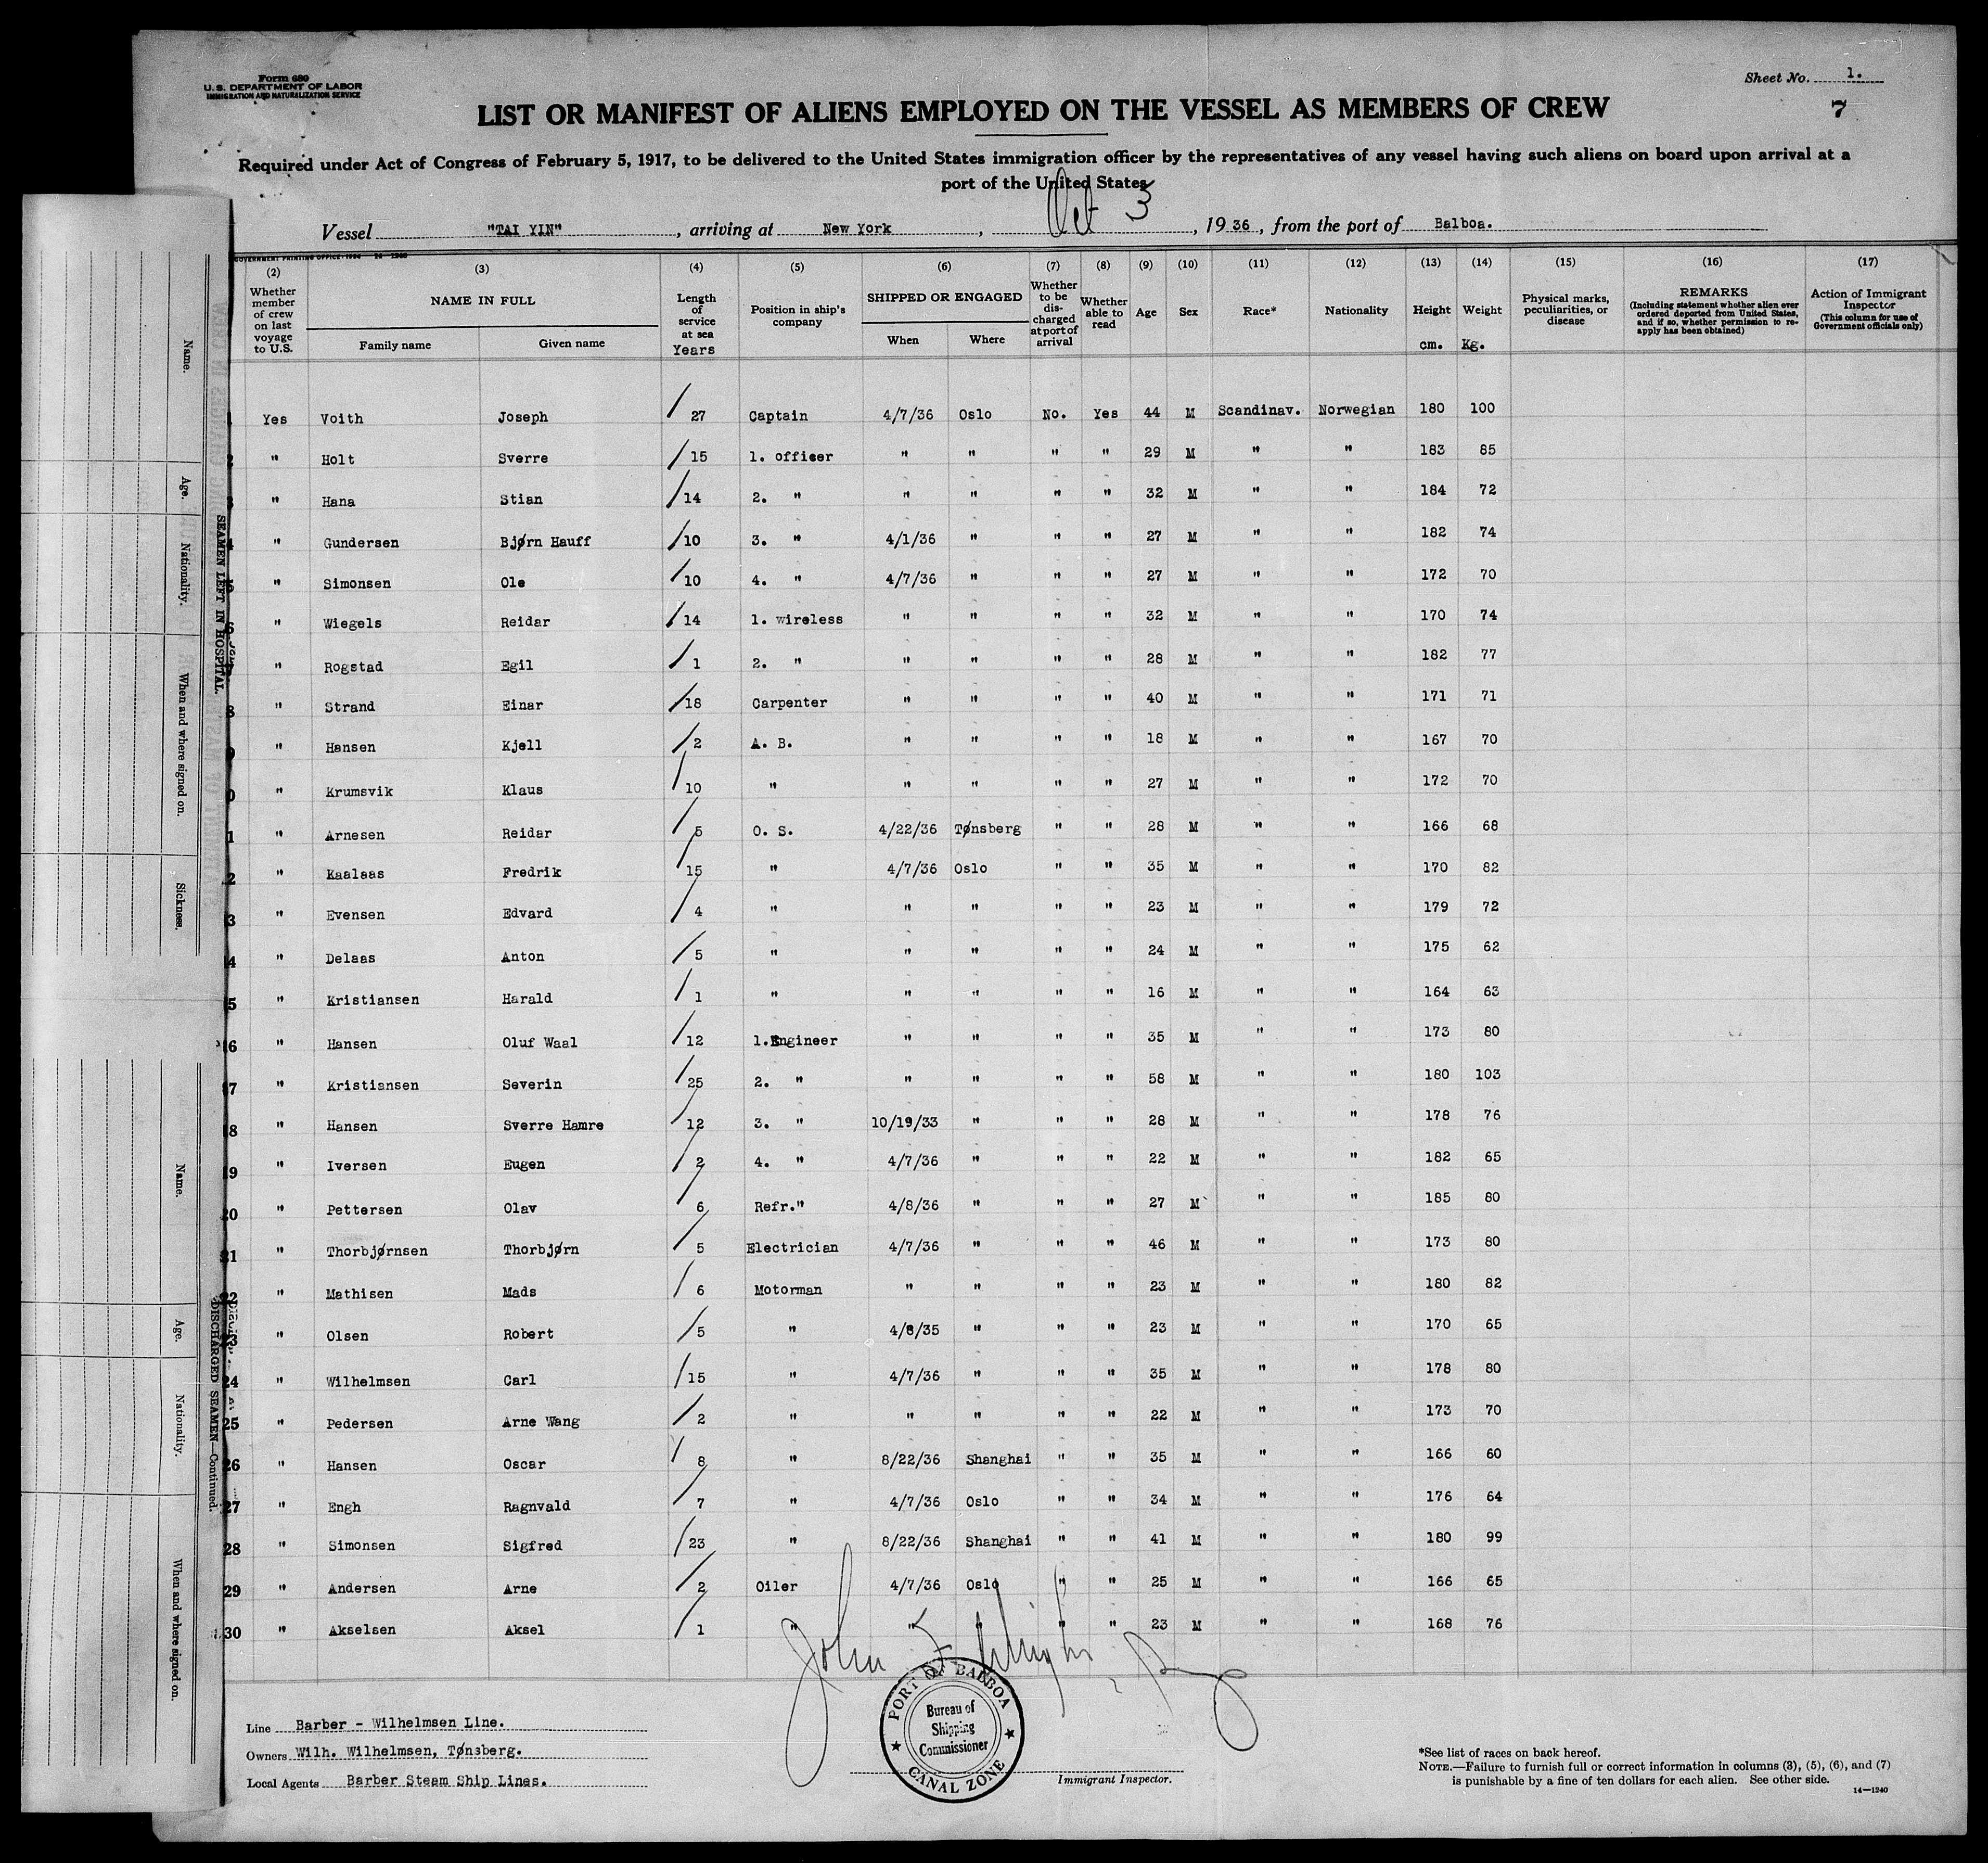 Form 680
U. S. DEPARTMENT OF LABOR
IMMIGRATION AND NATURALIZATION SERVICE
Sheet No. 1.
7
LIST OR MANIFEST OF ALIENS EMPLOYED ON THE VESSEL AS MEMBERS OF CREW
Required under Act of Congress of February 5, 1917, to be delivered to the United States immigration officer by the representatives of any vessel having such aliens on board upon arrival at a
port of the United States
Vessel "TAI YIN", arriving at New York, Oct 3, 1936, from the port of Balboa.
(2) (3) (4) (5) (6) (7) (8) (9) (10) (11) (12) (13) (14) (15) (16) (17)
Whether member of crew on last voyage to U.S.
NAME IN FULL
Family name Given name
Length of service at sea Years
Position in ship's company
SHIPPED OR ENGAGED
When Where
Whether to be discharged at port of arrival
Whether able to read
Age
Sex
Race*
Nationality
Height cm.
Weight Kg.
Physical marks, peculiarities, or disease
REMARKS
(Including statement whether alien ever ordered deported from United States, and if so, whether permission to reapply has been obtained)
Action of Immigrant Inspector
(This column for use of Government officials only)
Yes Voith Joseph 27 Captain 4/7/36 Oslo No. Yes 44 M Scandinav. Norwegian 180 100
" Holt Sverre 15 1. officer " " " " 29 M " " 183 85
" Hana Stian 14 2. " " " " " 32 M " " 184 72
" Gundersen Bjørn Hauff 10 3. " 4/1/36 " " " 27 M " " 182 74
" Simonsen Ole 10 4. " 4/7/36 " " " 27 M " " 172 70
" Wiegels Reidar 14 1. wireless " " " " 32 M " " 170 74
" Rogstad Egil 1 2. " " " " " 28 M " " 182 77
8 " Strand Einar 18 Carpenter " " " " 40 M " " 171 71
" Hansen Kjell 2 A. B. " " " " 18 M " " 167 70
0 " Krumsvik Klaus 10 " " " " " 27 M " " 172 70
1 " Arnesen Reidar 5 O. S. 4/22/36 Tønsberg " " 28 M " " 166 68
2 " Kaalaas Fredrik 15 " 4/7/36 Oslo " " 35 M " " 170 82
3 " Evensen Edvard 4 " " " " " 23 M " " 179 72
4 " Delaas Anton 5 " " " " " 24 M " " 175 62
5 " Kristiansen Harald 1 " " " " " 16 M " " 164 63
6 " Hansen Oluf Waal 12 1.Engineer " " " " 35 M " " 173 80
7 " Kristiansen Severin 25 2. " " " " " 58 M " " 180 103
8 " Hansen Sverre Hamre 12 3. " 10/19/33 " " " 28 M " " 178 76
9 " Iversen Eugen 2 4. " 4/7/36 " " " 22 M " " 182 65
20 " Pettersen Olav 6 Refr." 4/8/36 " " " 27 M " " 185 80
21 " Thorbjørnsen Thorbjørn 5 Electrician 4/7/36 " " " 46 M " " 173 80
22 " Mathisen Mads 6 Motorman " " " " 23 M " " 180 82
23 " Olsen Robert 5 " 4/8/35 " " " 23 M " " 170 65
24 " Wilhelmsen Carl 15 " 4/7/36 " " " 35 M " " 178 80
25 " Pedersen Arne Wang 2 " " " " " 22 M " " 173 70
26 " Hansen Oscar 8 " 8/22/36 Shanghai " " 35 M " " 166 60
27 " Engh Ragnvald 7 " 4/7/36 Oslo " " 34 M " " 176 64
28 " Simonsen Sigfred 23 " 8/22/36 Shanghai " " 41 M " " 180 99
29 " Andersen Arne 2 Oiler 4/7/36 Oslo " " 25 M " " 166 65
30 " Akselsen Aksel 1 " " " " " 23 M " " 168 76
John
PORT OF BALBOA
Bureau of
Shipping
Commissioner
CANAL ZONE
Line Barber - Wilhelmsen Line.
Owners Wilh. Wilhelmsen, Tønsberg.
Local Agents Barber Steam Ship Lines.
Immigrant Inspector.
*See list of races on back hereof.
NOTE.—Failure to furnish full or correct information in columns (3), (5), (6), and (7)
is punishable by a fine of ten dollars for each alien. See other side.
14—1240
SEAMEN LEFT IN HOSPITAL.
Name.
Age.
Nationality.
When and where signed on.
Sickness.
DISCHARGED SEAMEN—Continued.
Name.
Age.
Nationality.
When and where signed on.